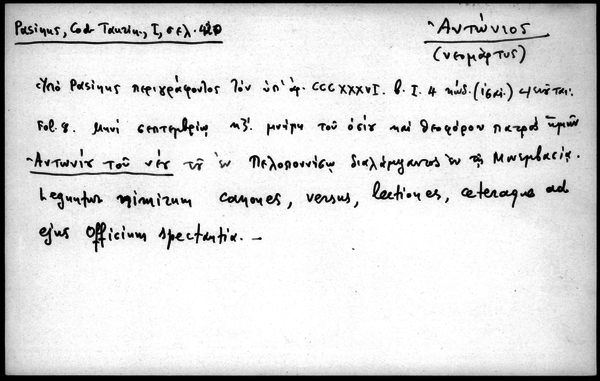 Pasinus, Cod. Taurin., I, σελ. 420
Ἀντώνιος
(νεομάρτυς)
Ὑπὸ Pasinus περιγράφοντος τὸν ὑπ' ἀρ. CCCXXXVI. b. I. 4 κώδ. 
Fol. 8. Μηνὶ σεπτεμβρίῳ κζ. μνήμη τοῦ ὁσίου καὶ θεοφόρου πατρὸς ἡμῶν
Ἀντωνίου τοῦ νέου τοῦ ἐν Πελοποννήσῳ διαλάμψαντος ἐν τῇ Μονεμβασίᾳ.
Leguntur nimirum canones, versus, lectiones, ceteraque ad
ejus Officium spectantia. —